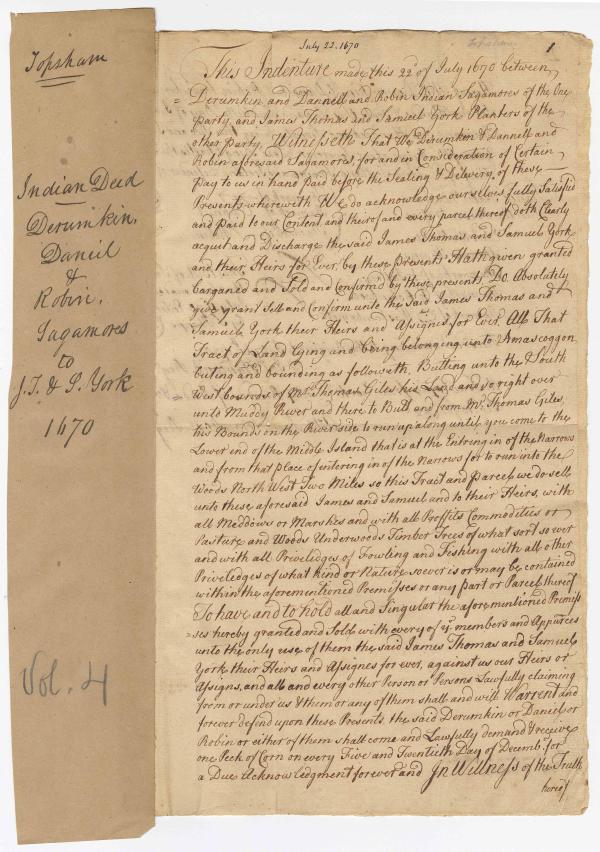 Topsham
Indian Deed
Derumkin,
Daniel
&
Robin.
Sagamores
to
J.T. & S. York
1670
Vol. 4
July 22. 1670
Topsham
1
This Indenture made this 22d of July 1670 between
Derumkin and Dannell and Robin Indian Sagamores of the One
party, and James Thomas and Samuel York Planters of the
other party, Witnesseth That We Derumkin & Dannell and
Robin aforesaid Sagamores, for and in Consideration of Certain
pay to us in hand paid before the Sealing & Delivery of these
Presents wherewith We do acknowledge ourselves fully Satisfied
and paid to our Content and thereof and every parcel thereof doth Clearly
acquit and Discharge the said James Thomas and Samuel York
and their Heirs for Ever, by these presents Hath given granted
barganed and Sold and Confirm'd by these presents, Do Absolutely
give grant Sell and Confirm unto the said James Thomas and
Samuel York their Heirs and Assignes for Ever, All That
Tract of Land lying and being belonging unto Amascoggon
buting and bounding as followeth, Butting unto the South
West bounds of Mr. Thomas Giles his Land and so right over
unto Muddy River and there to Butt and from Mr. Thomas Giles
his Bounds on the River side to run up along until you come to the
Lower end of the Middle Island that is at the Entring in of the Narrows
and from that place of entering in of the Narrows for to run into the
Woods North West Two Miles so this Tract and Parcel we do sell
unto these aforesaid James and Samuel and to their Heirs, with
all Meddows or Marshes and with all Proffits Commodities or
Pasture and Woods Underwoods Timber Trees of what sort soever
and with all Priviledges of Fowling and Fishing with all other
Priviledges of what kind or Nature soever is or may be contained
within the aforementioned Premisses or any part or Parcel thereof
To have and to hold all and Singular the aforementioned Premiss
=ses hereby granted and Sold, with every of ye members and Appurces
unto the only use of them the said James Thomas and Samuel
York their Heirs and Assignes for ever, against us our Heirs or
Assigns, and all and every other Person or Persons Lawfully claiming
from or under us & them or any of them shall and will Warrent and
forever defend upon these Presents the said Derumkin or Daniel or
Robin or either of them shall come and Lawfully demand & receive
one Peck of Corn on every Five and Twentieth Day of Decemb. for
a Due Acknowledgment forever and In Witness of the Truth
hereof